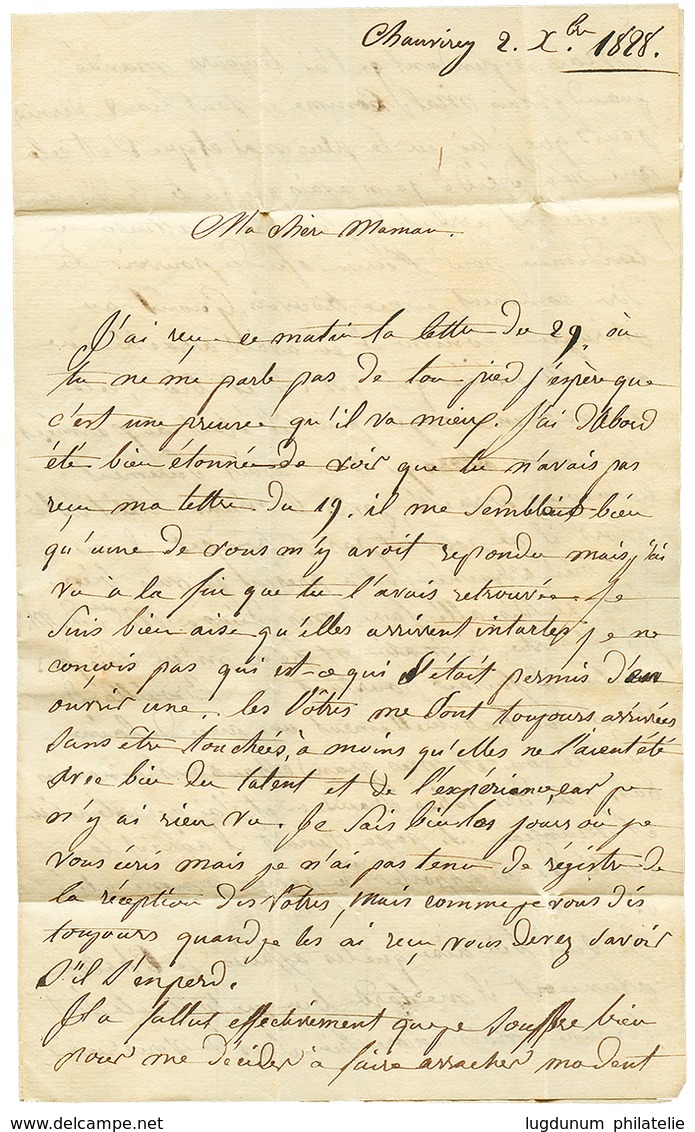 Chauvirey 2. Xbre. 1828.
Ma chère Maman.
J'ai reçu ce matin ta lettre du 29. où
tu ne me parle pas de ton pied j'espère que
c'est une preuve qu'il va mieux. J'ai d'abord
été bien étonnée de voir que tu n'avais pas
reçu ma lettre du 19. il me semblait bien
qu'une de vous m'y avoit repondu mais j'ai
vu à la fin que tu l'avais retrouvée. Je
suis bien aise qu'elles arrivent intactes je ne
conçois pas qui est-ce qui s'était permis d'en
ouvrir une, les vôtres me sont toujours arrivées
sans être touchées, à moins qu'elles ne l'aient été
avec bien du talent et de l'expérience, car je
n'y ai rien vu. Je sais bien les jours où je
vous écris mais je n'ai pas tenu de régistre de
la réception des vôtres, mais comme je vous dis
toujours quand je les ai reçu, vous devez savoir
s'il s'en perd.
Il a fallut effectivement que je souffre bien
pour me décider à faire arracher ma dent
www.delcampe.net
lugdunum philatelie